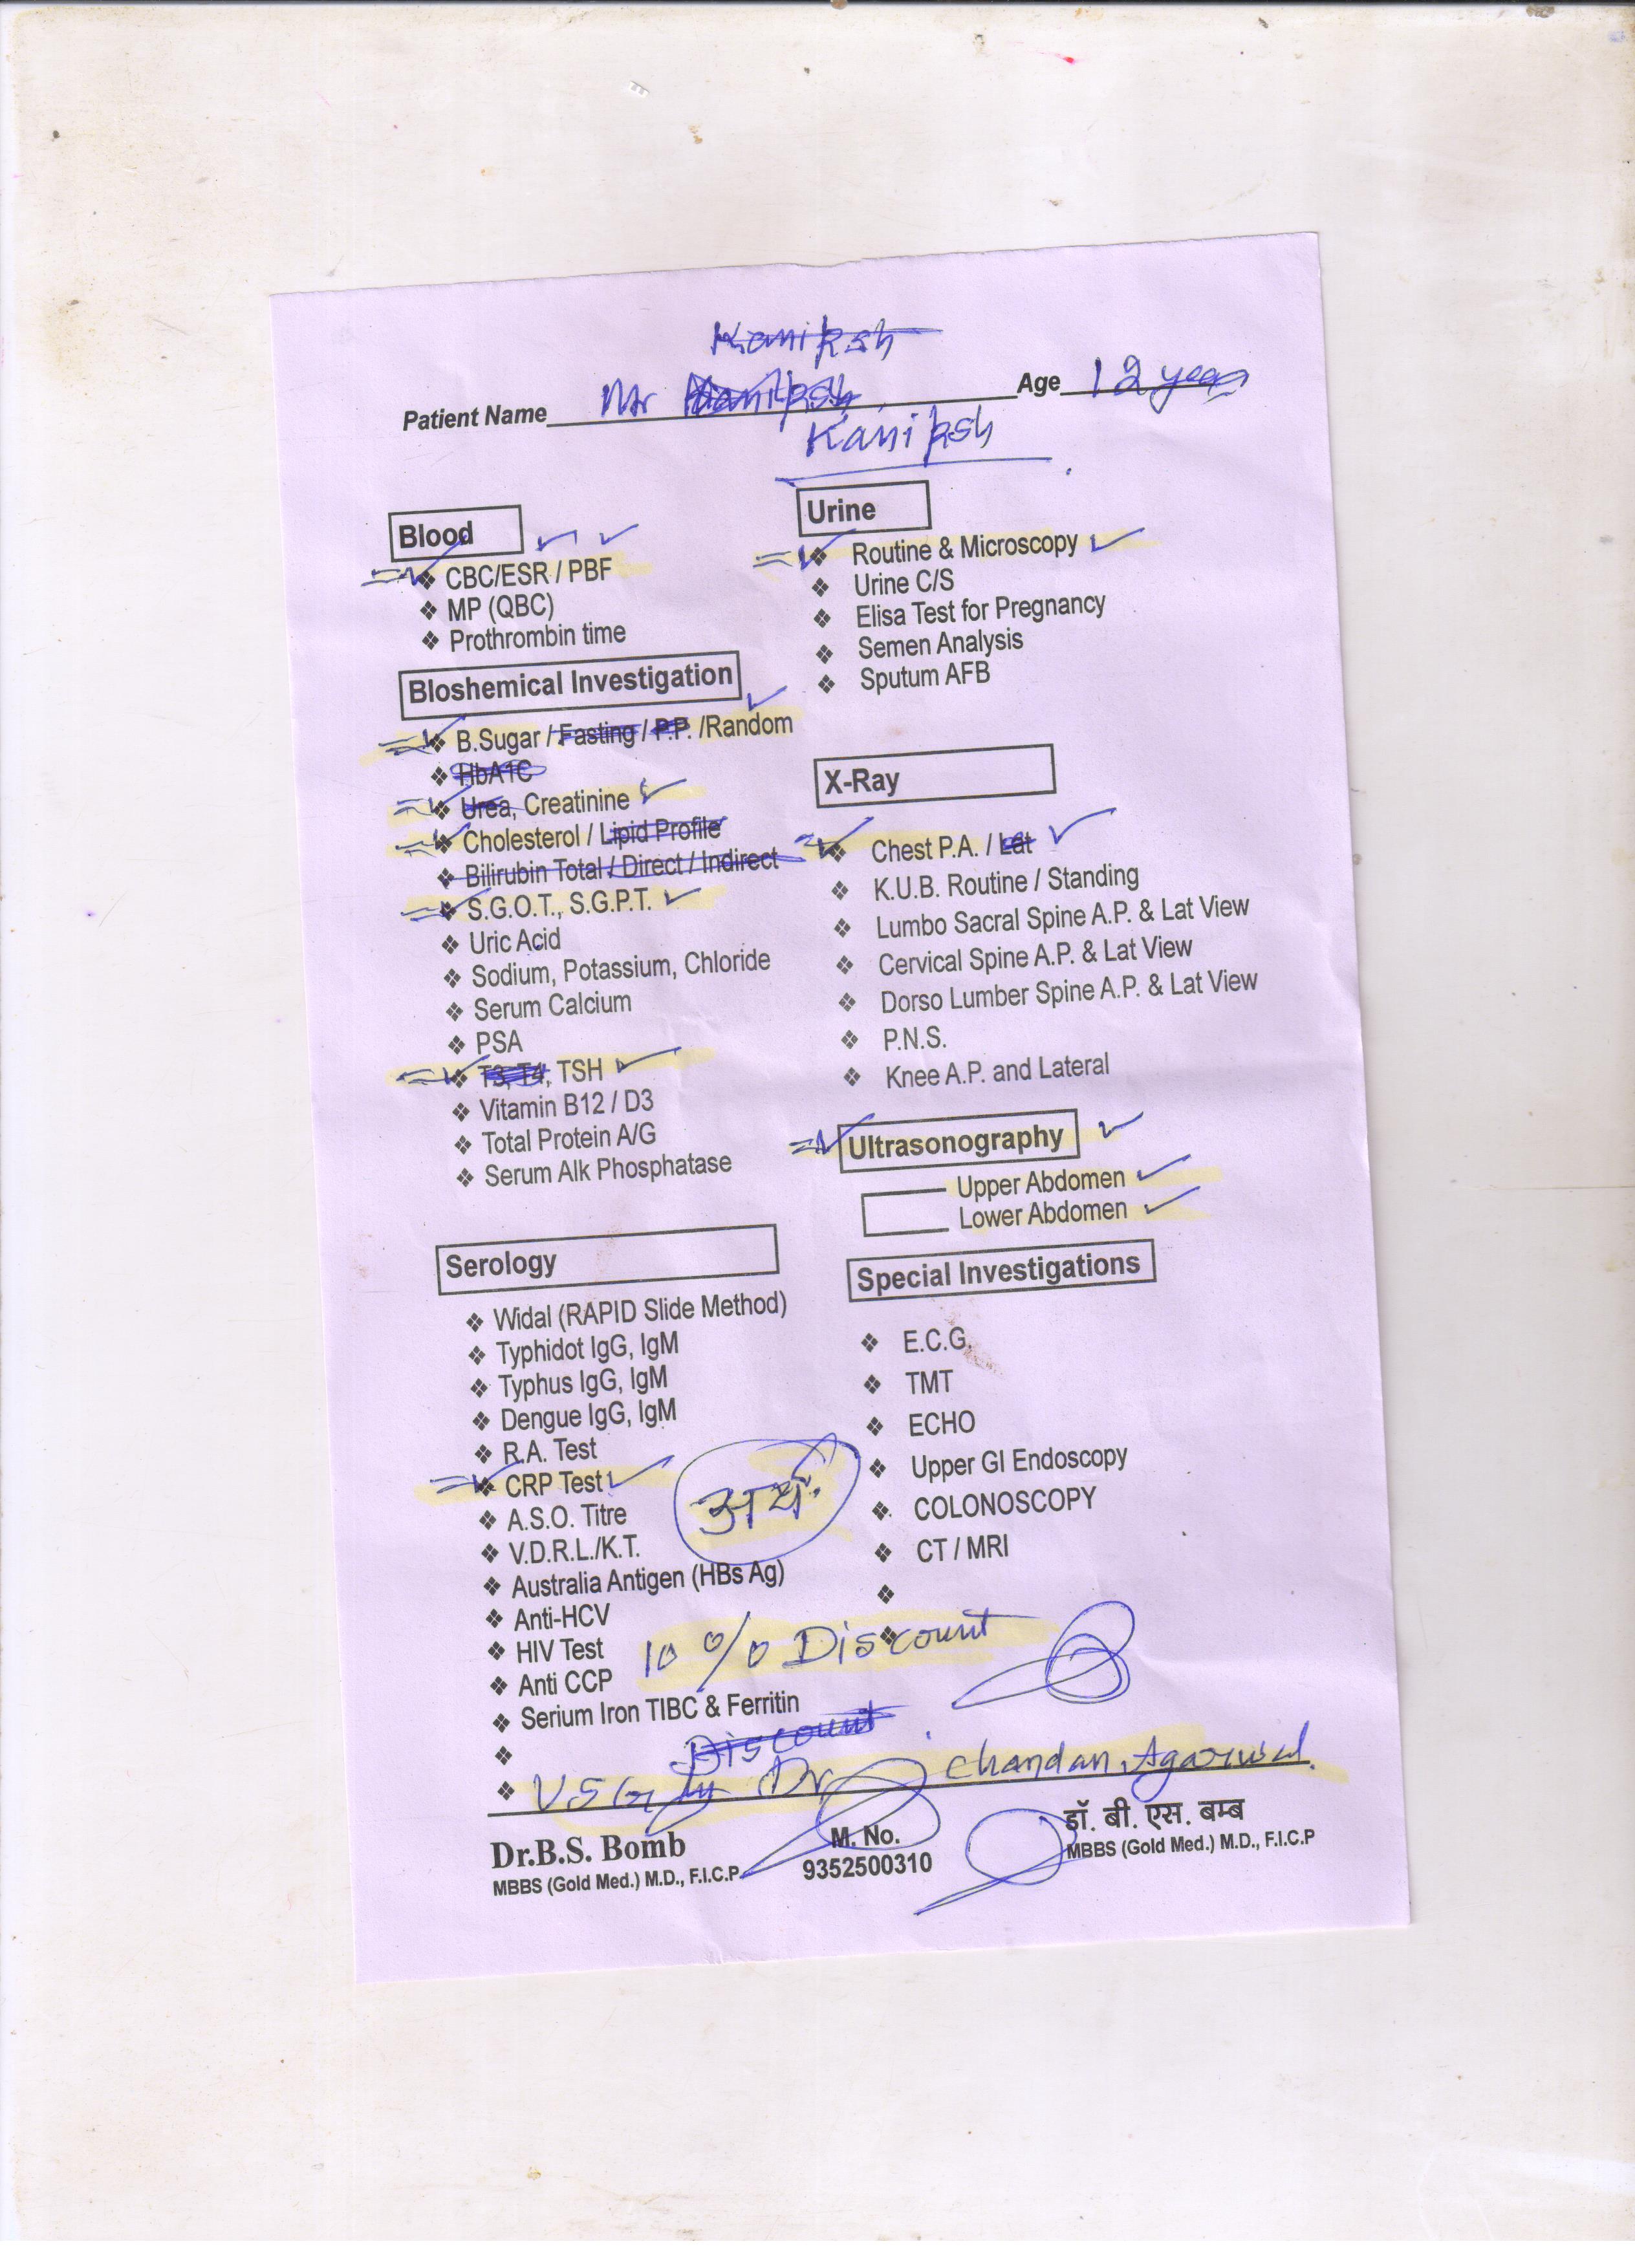 Kaniksh
Patient Name Mr Kaniksh Age 12 years
Kaniksh
Blood
CBC/ESR / PBF
MP (QBC)
Prothrombin time
Bloshemical Investigation
B.Sugar / Fasting / P.P. /Random
HbA1C
Urea, Creatinine
Cholesterol / Lipid Profile
Bilirubin Total / Direct / Indirect
S.G.O.T., S.G.P.T.
Uric Acid
Sodium, Potassium, Chloride
Serum Calcium
PSA
T3, T4, TSH
Vitamin B12 / D3
Total Protein A/G
Serum Alk Phosphatase
Serology
Widal (RAPID Slide Method)
Typhidot IgG, IgM
Typhus IgG, IgM
Dengue IgG, IgM
R.A. Test
CRP Test
A.S.O. Titre
V.D.R.L./K.T.
Australia Antigen (HBs Ag)
Anti-HCV
HIV Test
Anti CCP
Serium Iron TIBC & Ferritin
Urine
Routine & Microscopy
Urine C/S
Elisa Test for Pregnancy
Semen Analysis
Sputum AFB
X-Ray
Chest P.A. / Lat
K.U.B. Routine / Standing
Lumbo Sacral Spine A.P. & Lat View
Cervical Spine A.P. & Lat View
Dorso Lumber Spine A.P. & Lat View
P.N.S.
Knee A.P. and Lateral
Ultrasonography
Upper Abdomen
Lower Abdomen
Special Investigations
E.C.G.
TMT
ECHO
Upper GI Endoscopy
COLONOSCOPY
CT / MRI
10 % Discount
Discount
USG by Dr Chandan Agarwal.
Dr.B.S. Bomb
MBBS (Gold Med.) M.D., F.I.C.P
M. No.
9352500310
डॉ. बी. एस. बम्ब
MBBS (Gold Med.) M.D., F.I.C.P